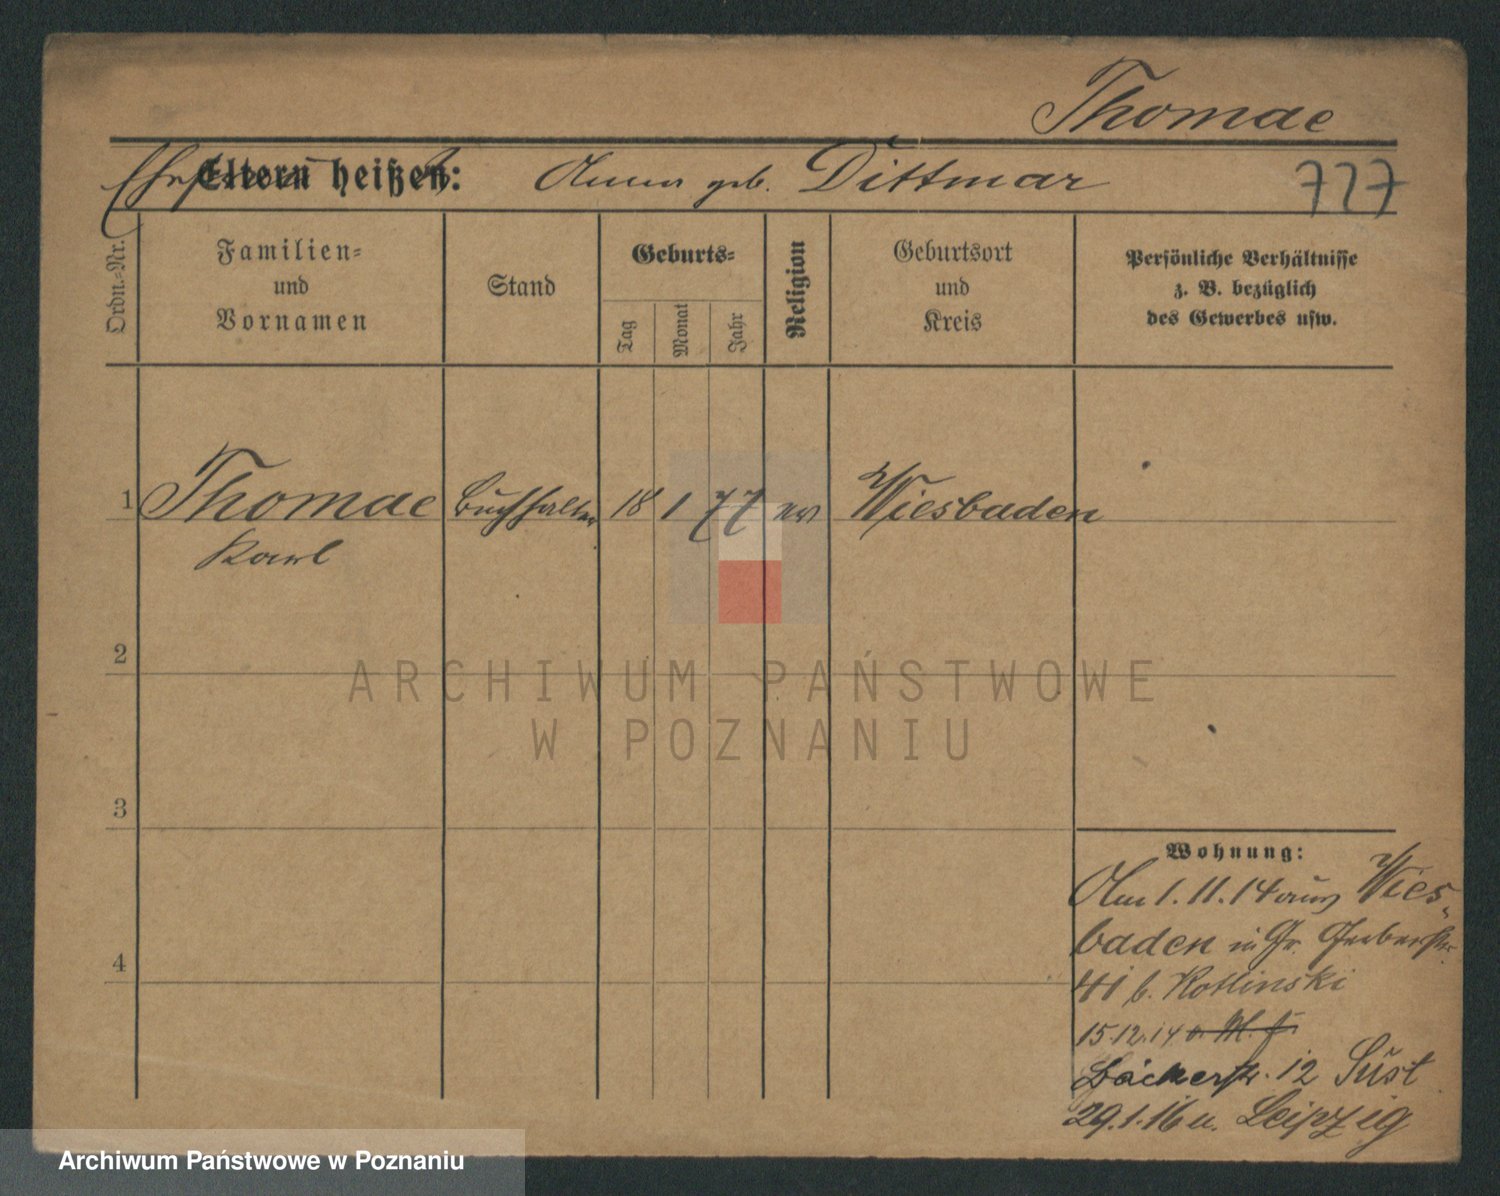 Thomae
Ehefrau
Eltern heißen: Anna geb. Dittmar
727
Ordn.=Nr.
Familien=
und
Vornamen
Stand
Geburts=
Tag
Monat
Jahr
Religion
Geburtsort
und
Kreis
Persönliche Verhältnisse
z. B. bezüglich
des Gewerbes usw.
1 Thomae Buchhalter 18 1 77 ev Wiesbaden
Karl
2
3
4
Wohnung:
Am 1.11.14 aus Wies-
baden in Gr. Gerberstr.
41 b. Kotlinski
15.12.14
Bäckerstr. 12 Süst
29.1.16 n. Leipzig
ARCHIWUM PAŃSTWOWE
W POZNANIU
Archiwum Państwowe w Poznaniu